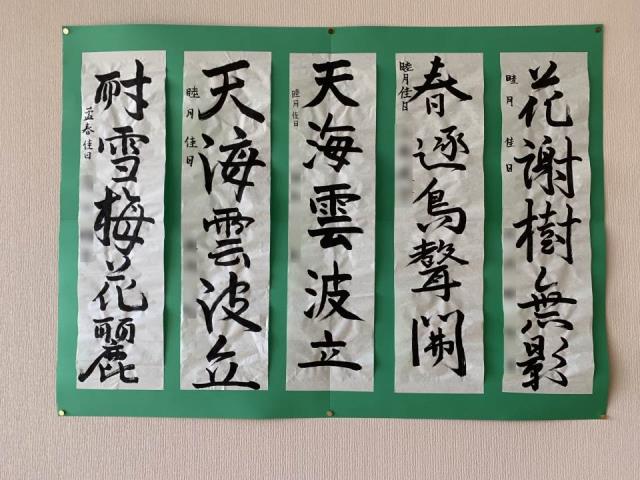 花謝樹無影
睦月佳日
春逐鳥聲開
睦月佳日
天海雲波立
睦月佳日
天海雲波立
睦月佳日
耐雪梅花麗
孟春佳日